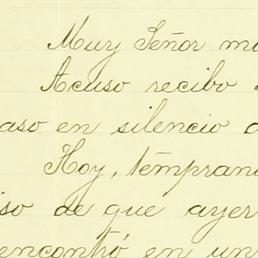 Muy Señor m
Acuso recibo
aso en silencio
Hoy, tempran
iso de que ayer
encontró en un